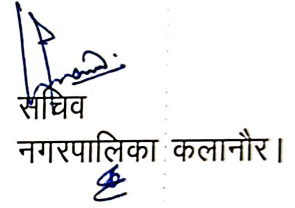 सचिव
नगरपालिका कलानौर।